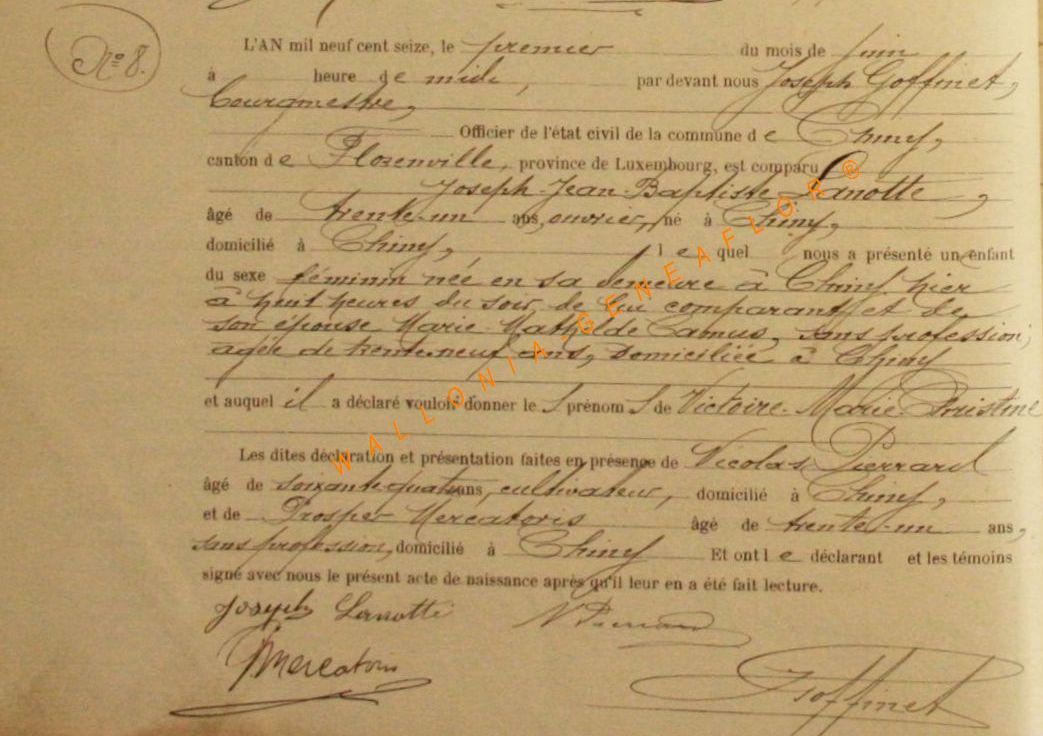 N° 8.
L'AN mil neuf cent seize, le premier du mois de juin
à heure de midi, par devant nous Joseph Goffinet,
bourgmestre,
Officier de l'état civil de la commune de Chiny,
canton de Florenville, province de Luxembourg, est comparu
Joseph-Jean-Baptiste Lanotte,
âgé de trente-un ans, ouvrier, né à Chiny,
domicilié à Chiny, lequel nous a présenté un enfant
du sexe féminin née en sa demeure à Chiny hier
à huit heures du soir, de lui comparant et de
son épouse Marie-Mathilde Camus, sans profession,
agée de trente-neuf ans, domiciliée à Chiny
et auquel il a déclaré vouloir donner les prénoms de Victoire-Marie-Christine
Les dites déclaration et présentation faites en présence de Nicolas Pierrard
âgé de soixante-quatre ans, cultivateur, domicilié à Chiny,
et de Prosper Mercatoris âgé de trente-un ans,
sans profession, domicilié à Chiny Et ont le déclarant et les témoins
signé avec nous le présent acte de naissance après qu'il leur en a été fait lecture.
Joseph Lanotte N Pierrard
Mercatoris
J Goffinet
WALLONIA-GENEAFLOR®